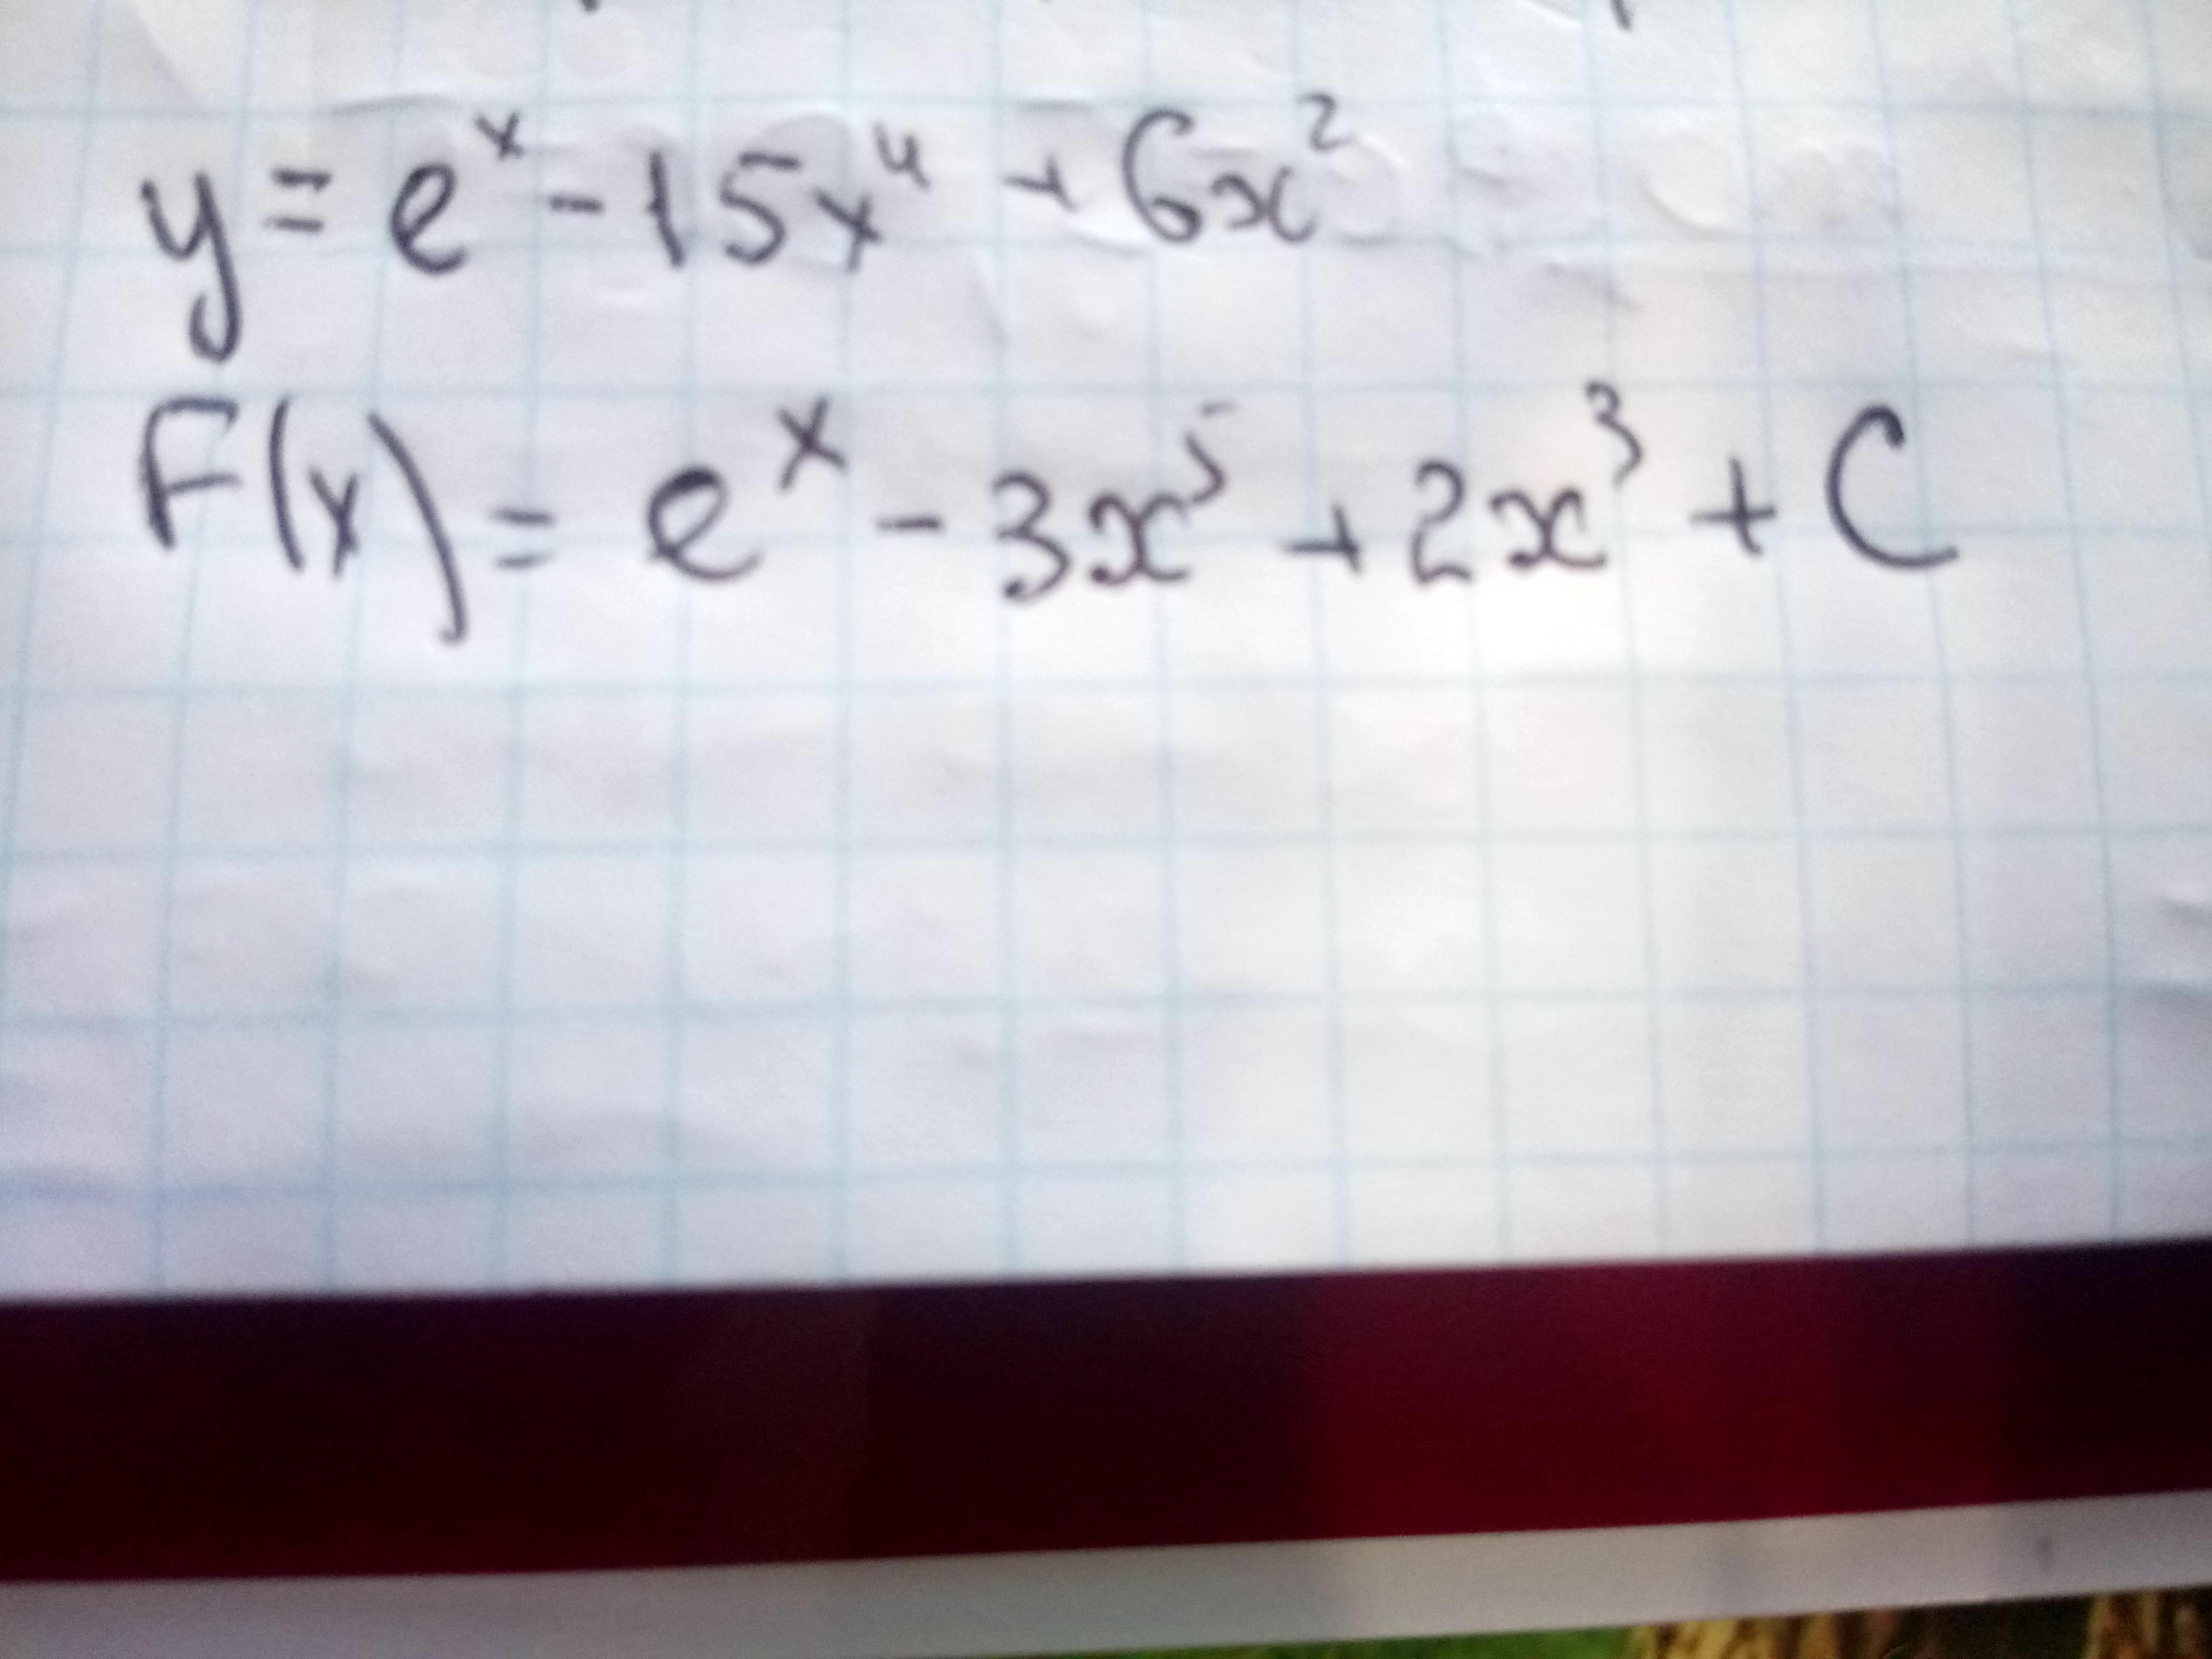 y = eˣ - 15x⁴ + 6x²
F(x) = eˣ - 3x⁵ + 2x³ + C